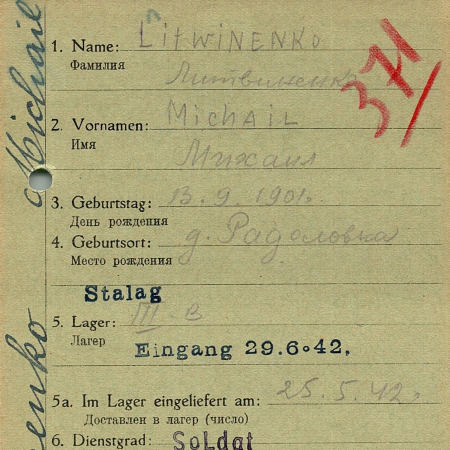 Michail
enko
371
1. Name: LitwiNENKo
Фамилия Литвиненко
2. Vornamen: MichAiL
Имя Михаил
3. Geburtstag: 13.9.1901.
День рождения
4. Geburtsort: д. Радоловка
Место рождения
Stalag
5. Lager: III-B
Лагер Eingang 29.6.42.
5a. Im Lager eingeliefert am: 25.5.42.
Доставлен в лагер (число)
6. Dienstgrad: Soldat